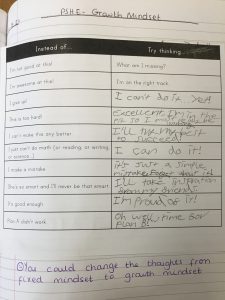 PSHE - Growth Mindset
Instead of... Try thinking...
I'm not good at this! What am I missing?
I'm awesome at this! I'm on the right track.
I give up! I can't do it.. yet
This is too hard! Excellent
I can't make this any better. I'll
to succeed!
I just can't do math (or reading, or writing, or science...) I can do it!
I make a mistake it's just a simple
mistake. Forget about it!
She's so smart and I'll never be that smart I'll take
from my friend!
It's good enough I'm proud of it!
Plan A didn't work Oh well, time for
Plan B!
You could change the thoughts from
fixed mindset to growth mindset